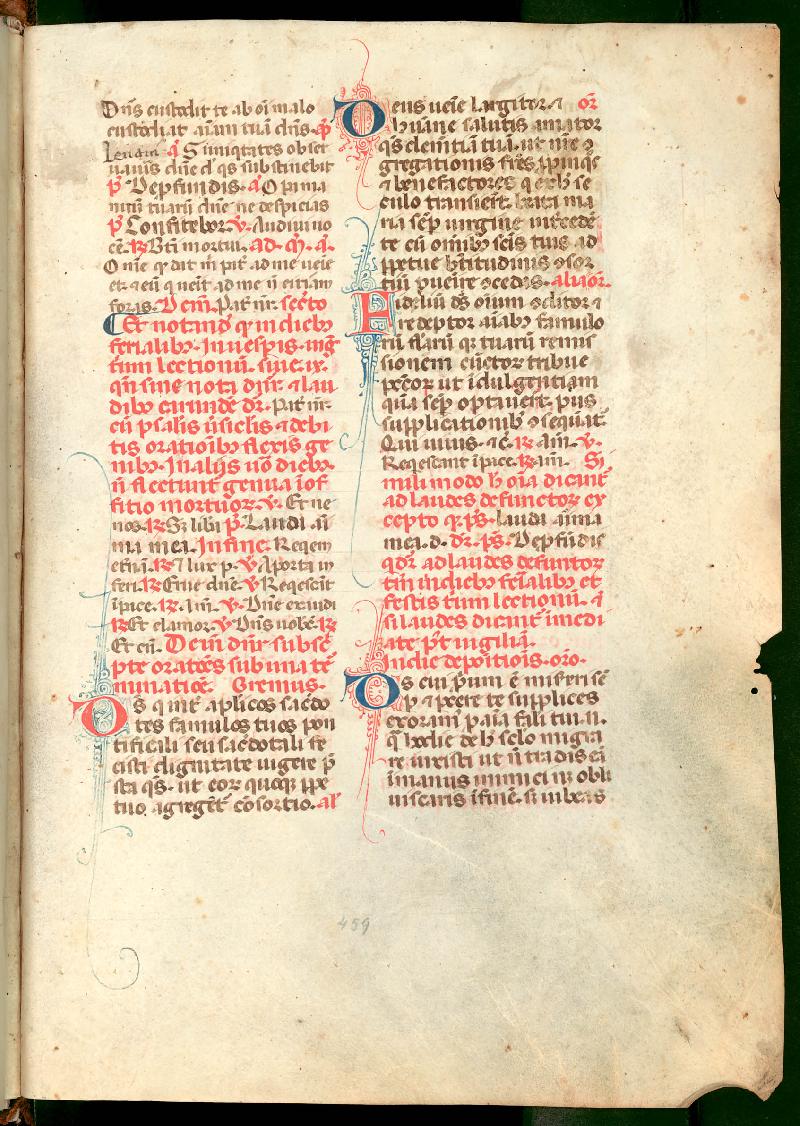 Dn̄s custodit te ab oī malo
custodiat aīam tuā dn̄s. p̄
Leuaui. a᷒ Si iniq̄tates obser
uaueris dn̄e d̄ qs sustinebit
p̄ De p̄fundis. a᷒ Opera
nuū tuarū dn̄e ne despicias
p̄ Confitebor. v. Audiui uo
cē. R̄ Bt̄i mortui. ad. m̄. a᷒.
Om̄e q̄ dat m̄ pat̄ ad me ueīe
et. ⁊ eū q̄ ueit ad me n̄ eitiam
foras. Dein̄. Pat̄ nr̄. sec̄to
Et notand᷒ q̄ in dieb᷒
ferialib᷒. In uesp̄is. mā
tum lectionū. siue ix.
qn̄ sine nota dr̄. ⁊ lau
dib᷒ eiusdē dr̄. Pat̄ nr̄.
cū psalīs ūsiclis ⁊ debi
tis orationib᷒ flexis ge
nib᷒. In alijs uō dieb᷒.
n̄ flectunt genua ī of
fitio mortuor᷒. v. Et ne
nos. R̄ S; libā p̄. Lauda aī
ma mea. In fine. Reqem
et̄nā. R̄ ⁊ lux p. v. A porta in
feri. R̄ Erue dn̄e. v. Reqescāt
ī pace. R̄. Am̄. v. Dn̄e exaudi
R̄ Et clamor. v. Dn̄s uobc̄. R̄
Et cū. Dein̄ dn̄r subsc̄
pte oratōes sub una t̄
minatiōe. Oremus.
Ds̄ q̄ int̄ aplicos sacdo
tes famulos tuos pon
tificali seu sac̄dotali fe
cisti dignitate uigere p̄
sta qs. ut eor᷒ quoq᷒ ppe
tuo agregēt̄ cōsortio. al᷒
Deus ueīe largitor ⁊ or̄
humane salutis amator
qs clem̄tiā tuā. ut nr̄e ꝯ
gregationis frēs ppinqs
⁊ benefactores q̄ ex h᷒ se
culo transiēt. beata ma
ria sep̄ uirgine int̄cedē
te cū omib᷒ scīs tuis ad
ppetue bt̄itudinis ꝯsor
tiū puenire ꝯcedas. alia or̄.
Fideliū ds̄ oīum ꝯditor ⁊
redeptor aīab᷒ famulo
rū flārū q̄ tuarū remis
sionem cūctor᷒ tribue
pccōr ut īdulgentiam
quā sep̄ optauert. piis
supplicationib᷒ ꝯsequāt᷒.
Qui uiuis. ⁊c̄. R̄ am̄. v.
Reqescant ī pace. R̄. am̄. Si
mili modo h̄ oīa dicunt᷒
ad laudes defunctor᷒ ex
cepto q̄ p̄s. lauda aīma
mea. d. dr̄. p̄s. De p̄fūdis
qd̄ ad laudes defunctor᷒
tm̄ in dieb᷒ fer̄alib᷒ et
festis tium lectionū. ⁊
si laudes dicunt᷒ imedi
ate p᷒t uigiliā.
In die depōitiōis. oro.
Ds̄ cui p̄ium ē miseri sē
p̄ ⁊ p̄cere te supplices
exoram᷒ p aīa fāli tui. n.
q̄ hodie de h᷒ sc̄lo migra
re iussisti ut n̄ tradas eā
ī manus inimici nec obli
uiscaris ī finē. s; iubeas
459